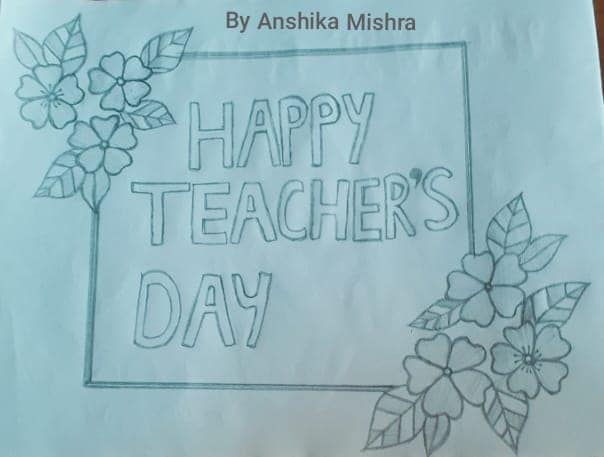 By Anshika Mishra
HAPPY
TEACHER'S
DAY